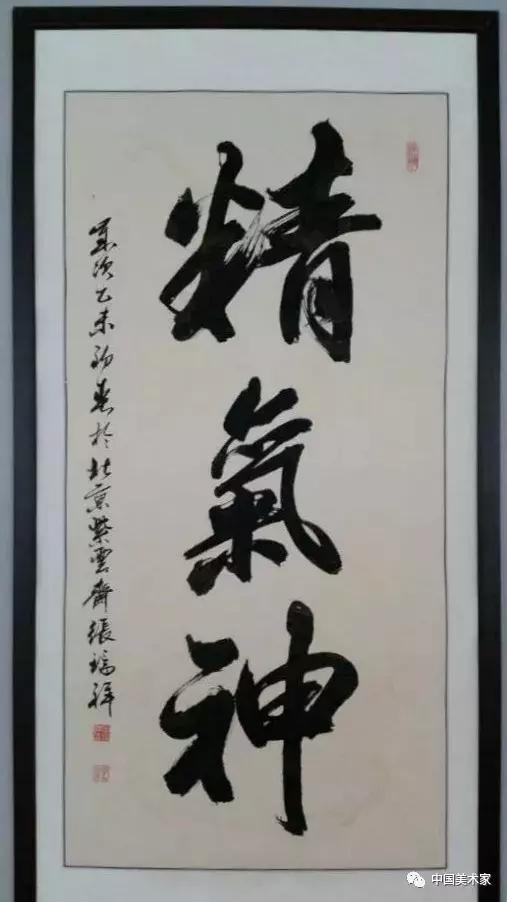 精氣神
歲次乙未初春於北京紫雲齋張瑞祥
中国美术家